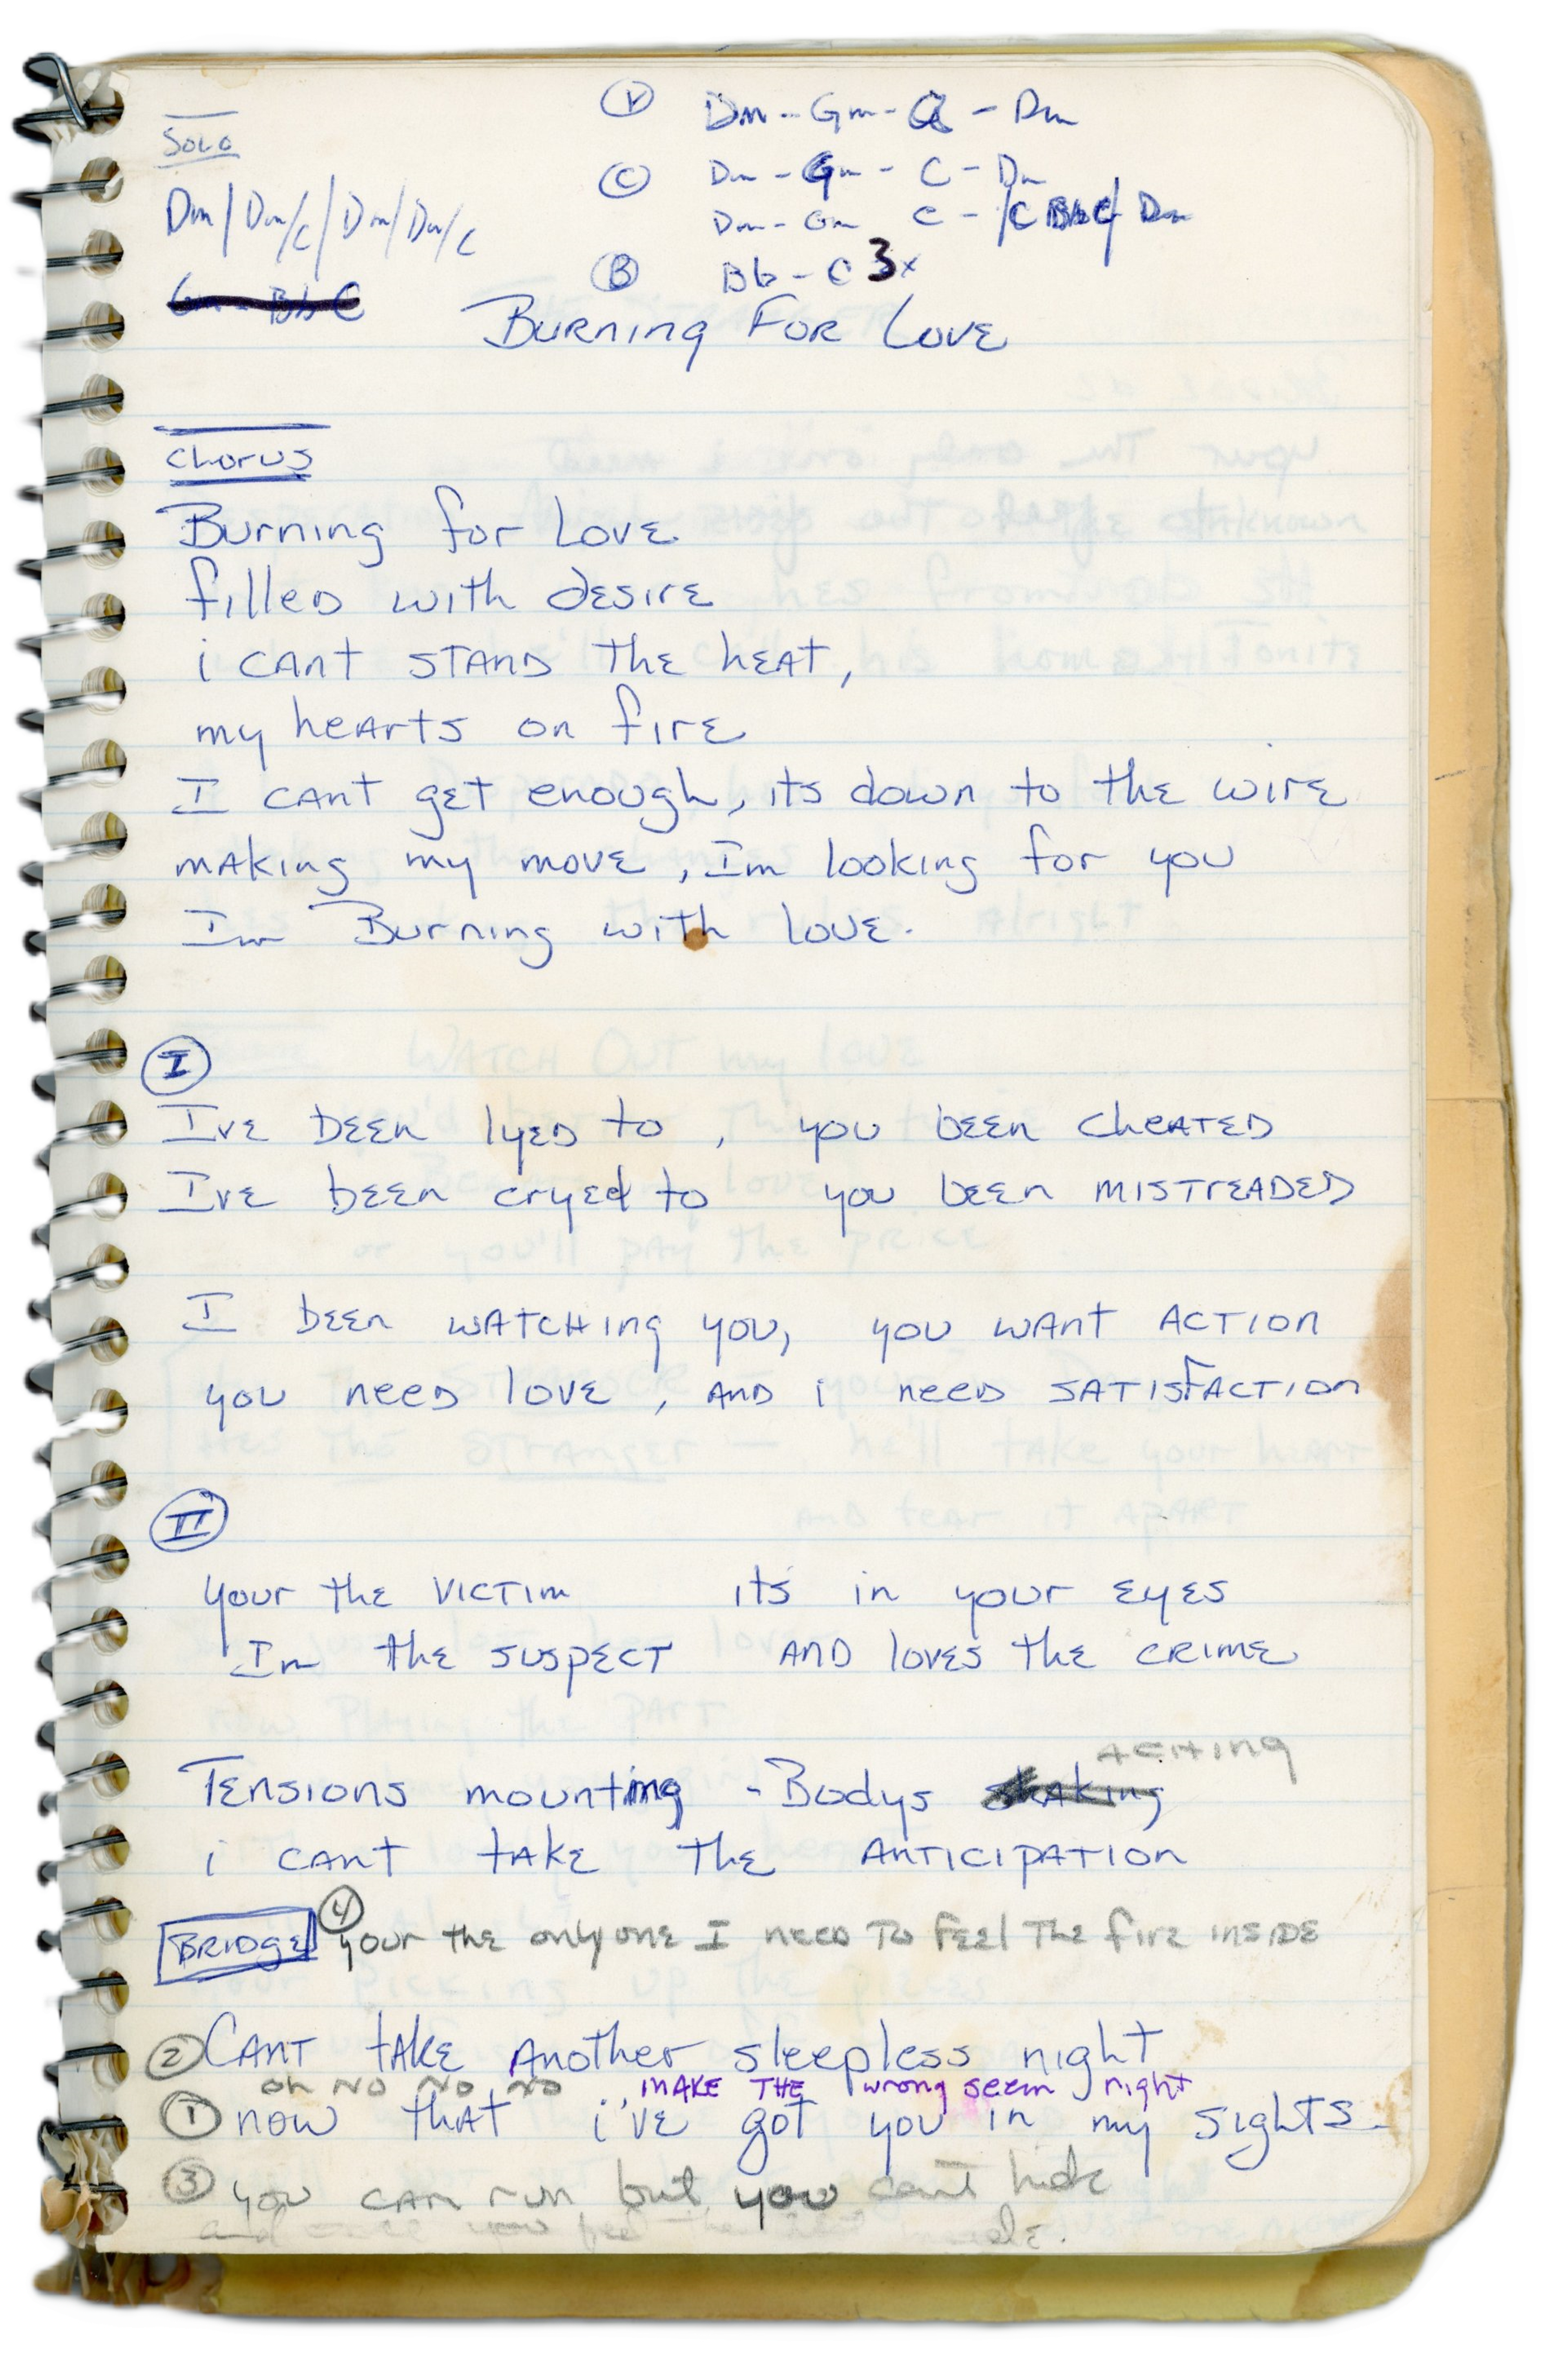 Solo
Dm / Dm/C / Dm / Dm/C
Gm Bb C
V Dm - Gm - A - Dm
C Dm - Gm - C - Dm
Dm - Gm C - / C Bb C / Dm
B Bb - C 3x
Burning For Love
Chorus
Burning for Love
filled with desire
i cant stand the heat,
my hearts on fire
I cant get enough, its down to the wire
making my move, Im looking for you
Im Burning with love.
I
Ive been lyed to , you been cheated
Ive been cryed to you been mistreaded
I been watching you, you want action
you need love, and i need satisfaction
II
your the victim its in your eyes
Im the suspect and loves the crime
aching
Tensions mounting - Bodys shaking
i cant take the anticipation
Bridge 4 your the only one I need to feel the fire inside
2 Cant take another sleepless night
oh no no no make the wrong seem right
1 now that i've got you in my sights
3 you can run but you can't hide